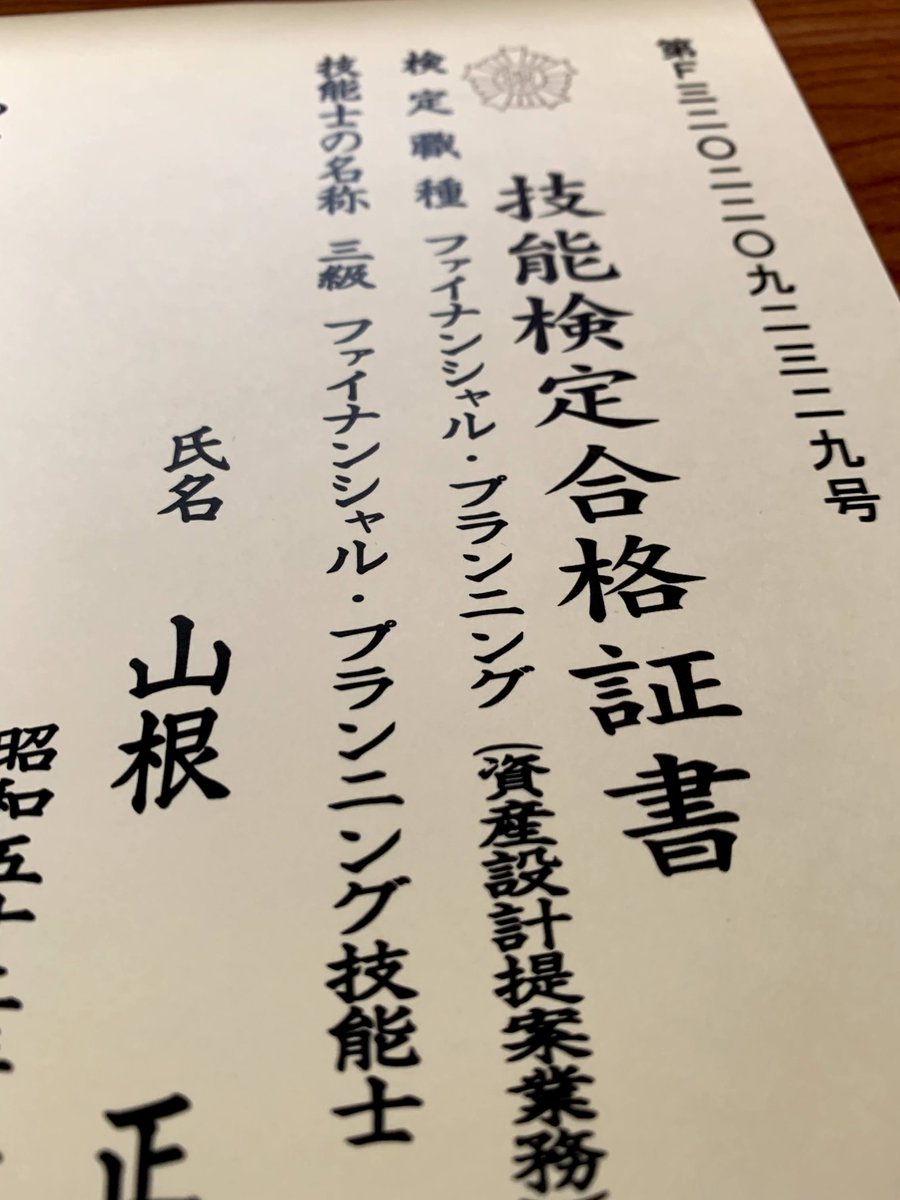 第F三二〇二二〇九二三二九号
技能検定合格証書
検定職種 ファイナンシャル・プランニング (資産設計提案業務
技能士の名称 三級 ファイナンシャル・プランニング技能士
氏名 山根 正
昭和五十